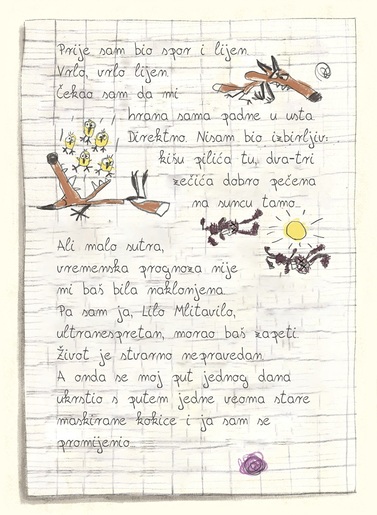 Prije sam bio spor i lijen.
Vrlo, vrlo lijen.
Čekao sam da mi
hrana sama padne u usta.
Direktno. Nisam bio izbirljiv:
kišu pilića tu, dva-tri
zečića dobro pečena
na suncu tamo...
Ali malo sutra,
vremenska prognoza nije
mi baš bila naklonjena.
Pa sam ja, Lilo Mlitavilo,
ultranespretan, morao baš zapeti.
Život je stvarno nepravedan.
A onda se moj put jednog dana
ukrstio s putem jedne veoma stare
maskirane kokice i ja sam se
promijenio.